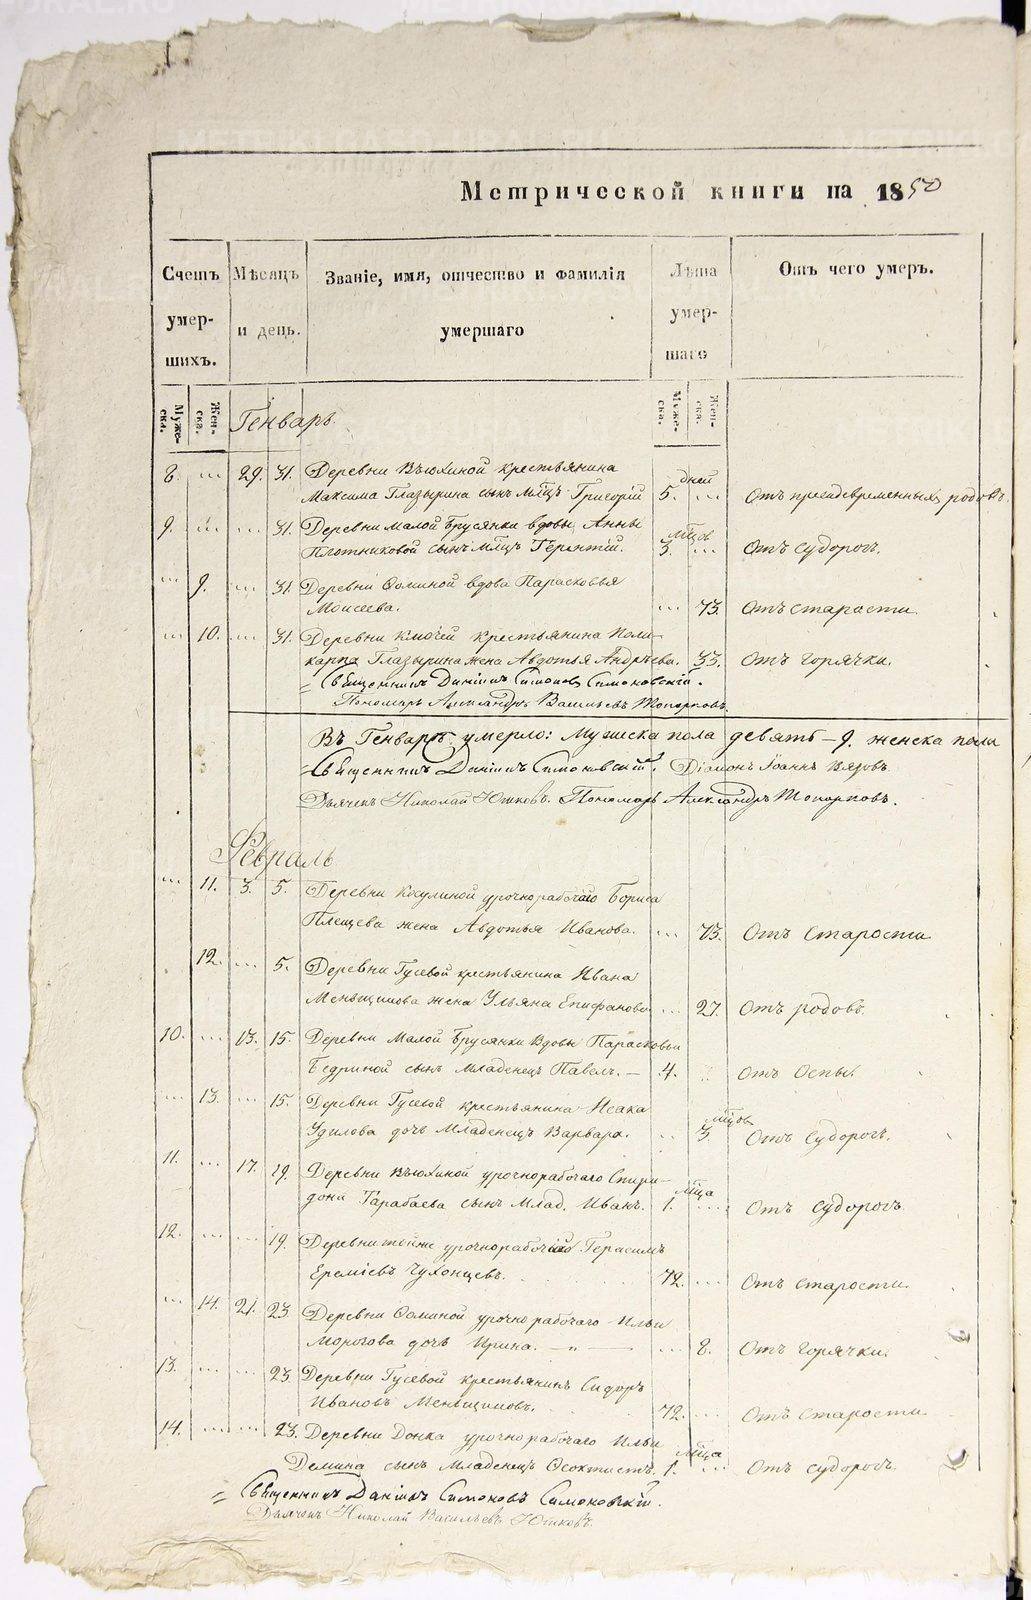 Метрической книги на 1850
Счетъ умер-шихъ.
Мѣсяцъ и день.
Званіе, имя, отчество и фамилія умершаго
Лѣта умер-шаго
Отъ чего умеръ.
Муже-ска.
Жен-ска.
Муже-ска.
Жен-ска.
Генварь.
8. ... 29. 31. Деревни Вьюхиной крестьянина дней
Максима Глазырина сынъ млцъ Григорій 5. ... Отъ преждевременныхъ родовъ.
9. ... ... 31. Деревни малой Брусянки вдовы Анны мцов
Плотниковой сынъ млцъ Терентій. 3. ... Отъ судорог.
... 9. ... 31. Деревни Фоминой вдова Парасковья
Моисеева. ... 73. Отъ старости.
... 10. ... 31. Деревни Ключей крестьянина Поли-
карпа Глазырина жена Авдотья Андрѣева. 33. Отъ горячки.
Священникъ Даніилъ Симоновъ Симоновскій.
Пономарь Александръ Васильевъ Топорковъ.
Въ Генварѣ умерло: Мужеска пола девять – 9. женска пола
Священникъ Даніилъ Симоновскій. Діаконъ Іоаннъ Вязовъ
Дьячекъ Николай Юшковъ. Пономарь Александръ Топорковъ.
Февраль
... 11. 3. 5. Деревни Косулиной урочнорабочаго Бориса
Плещева жена Авдотья Иванова. ... 73. Отъ Старости
12. ... 5. Деревни Гусевой крестьянина Ивана
Меньщикова жена Ульяна Епифанова. ... 27. Отъ родовъ.
10. ... 13. 15. Деревни Малой Брусянки Вдовы Парасковьи
Бедриной сынъ младенецъ Павелъ. — 4. Отъ Оспы.
... 13. ... 15. Деревни Гусевой крестьянина Исака мцовъ
Удилова дочь Младенецъ Варвара. ... 3. Отъ Судорогъ.
11. ... 17. 19. Деревни Вьюхиной урочнорабочаго Спири- мца
дона Тарабаева сынъ Млад. Иванъ. 1. ... Отъ судорогъ
12. ... ... 19. Деревни тойже урочнорабочій Герасимъ
Ереміевъ Чухонцевъ. 72. ... Отъ старости.
... 14. 21. 23 Деревни Фоминой урочно рабочаго Ильи
Морозова дочь Ирина. — „ — ... 8. Отъ горячки.
13. ... ... 23. Деревни Гусевой крестьянинъ Сидоръ
Ивановъ Меньщиковъ. 72. ... Отъ старости
14. ... ... 23. Деревни Донка урочнорабочаго Ильи мца
Демина сынъ Младенецъ Феоктистъ. 1. ... Отъ судорогъ.
Священникъ Даніилъ Симоновъ Симоновскій.
Дьячекъ Николай Васильевъ Юшковъ.